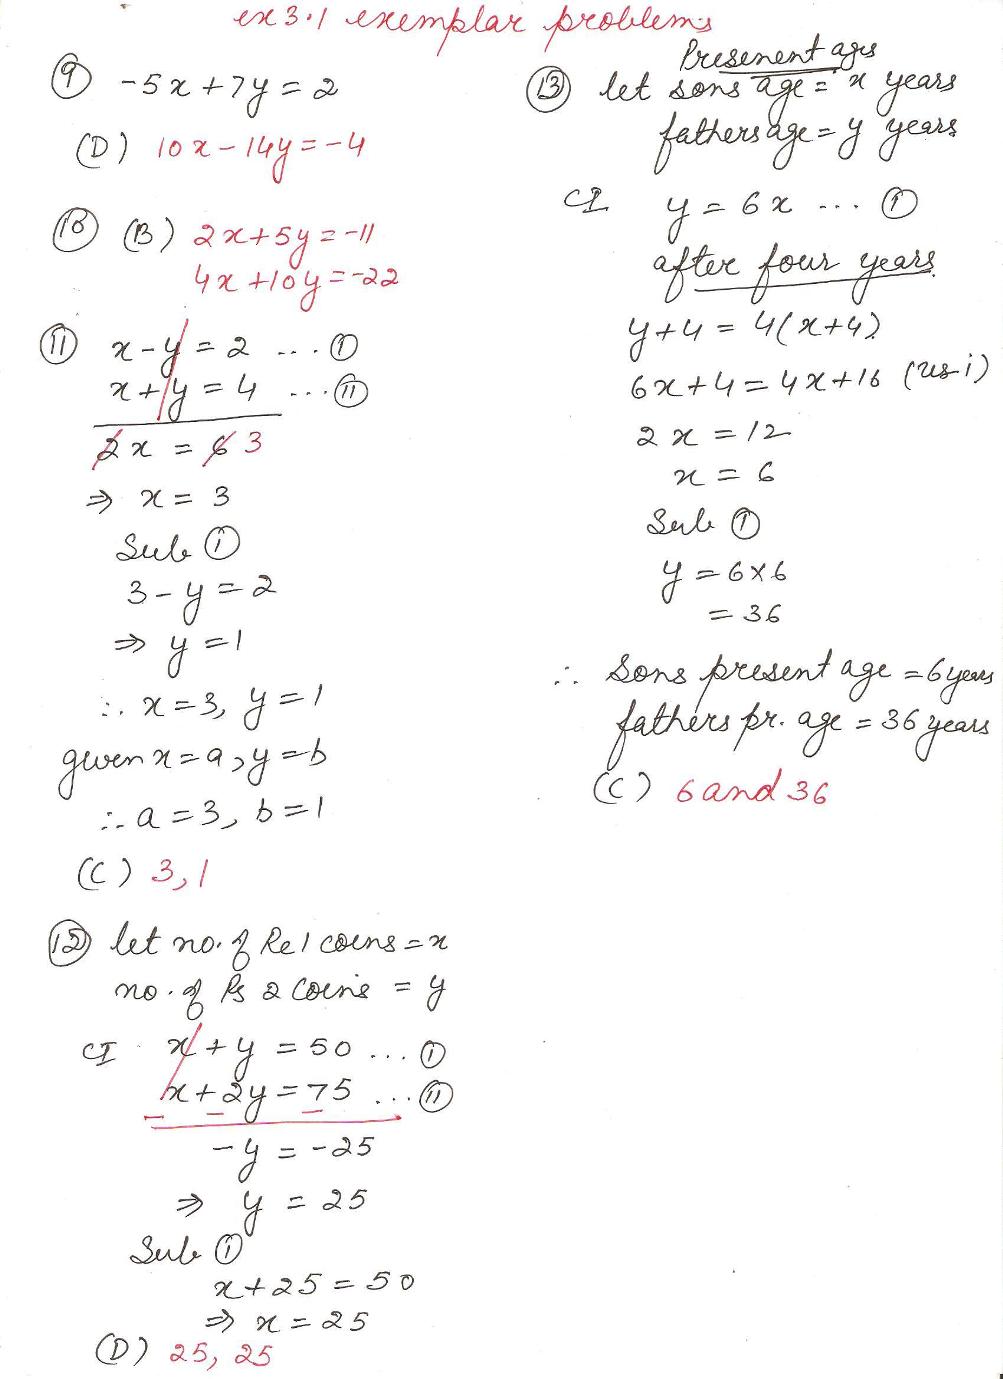 ex 3.1 exemplar problems
⑨ -5x + 7y = 2
(D) 10x - 14y = -4
⑩ (B) 2x + 5y = -11
4x + 10y = -22
⑪ x - y = 2 ... ①
x + y = 4 ... ⑪
2x = 6 3
⇒ x = 3
Sub ①
3 - y = 2
⇒ y = 1
∴ x = 3, y = 1
given x = a, y = b
∴ a = 3, b = 1
(C) 3, 1
⑫ let no. of Re 1 coins = x
no. of Rs 2 coins = y
CI x + y = 50 ... ①
x + 2y = 75 ... ⑪
- - -
-y = -25
⇒ y = 25
Sub ①
x + 25 = 50
⇒ x = 25
(D) 25, 25
Presenent ages
⑬ let sons age = x years
fathers age = y years
CI y = 6x ... ①
after four years
y + 4 = 4(x + 4)
6x + 4 = 4x + 16 (us i)
2x = 12
x = 6
Sub ①
y = 6 × 6
= 36
∴ Sons present age = 6 years
fathers pr. age = 36 years
(C) 6 and 36